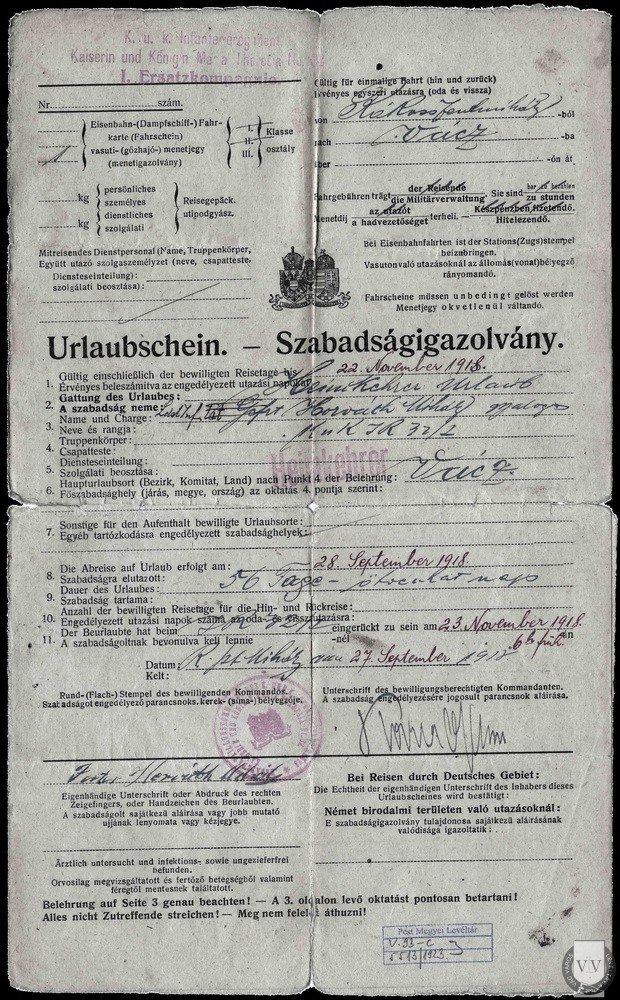 K. u. k. Infanterieregiment
Kaiserin und Königin Maria Theresia
I. Ersatzkompagnie
Nr. szám.
Eisenbahn-(Dampfschiff-) Fahr-
karte (Fahrschein)
vasuti-(gőzhajó-) menetjegy
(menetigazolvány)
1
I.
II.
III.
Klasse
osztály
kg
kg
persönliches
személyes
dienstliches
szolgálati
Reisegepäck.
utipodgyász.
Mitreisendes Dienstpersonal (Name, Truppenkörper,
Együtt utazó szolgaszemélyzet (neve, csapatteste
Diensteseinteilung):
szolgálati beosztása):
Gültig für einmalige Fahrt (hin und zurück)
Érvényes egyszeri utazásra (oda és vissza)
von -ból
nach Vácz -ba
über -ón át
Fahrgebühren trägt
der Reisende
die Militärverwaltung
Sie sind
bar zu bezahlen
zu stunden
Menetdij
az utazót
a hadvezetőséget
terheli. —
Készpénzben fizetendő.
Hitelezendő.
Bei Eisenbahnfahrten ist der Stations(Zugs)stempel
beizubringen.
Vasuton való utazásoknál az állomás(vonat)bélyegző
rányomandó.
Fahrscheine müssen unbedingt gelöst werden
Menetjegy okvetlenül váltandó.
Urlaubschein. — Szabadságigazolvány.
1. Gültig einschließlich der bewilligten Reisetage bis
Érvényes beleszámitva az engedélyezett utazási napokat
22. November 1918.
2. Gattung des Urlaubes:
A szabadság neme:
Heimkehrer Urlaub
3. Name und Charge:
Neve és rangja:
Gefr. Horváth Mihály
4. Truppenkörper:
Csapatteste:
K u K IR 32/2
5. Diensteseinteilung:
Szolgálati beosztása:
Heimkehrer
6. Haupturlaubsort (Bezirk, Komitat, Land) nach Punkt 4 der Belehrung:
Főszabadsághely (járás, megye, ország) az oktatás 4. pontja szerint:
Vácz.
7. Sonstige für den Aufenthalt bewilligte Urlaubsorte:
Egyéb tartózkodásra engedélyezett szabadsághelyek:
8. Die Abreise auf Urlaub erfolgt am:
Szabadságra elutazott:
28. September 1918.
9. Dauer des Urlaubes:
Szabadság tartama:
56 Tage –
10. Anzahl der bewilligten Reisetage für die Hin- und Rückreise:
Engedélyezett utazási napok száma az oda- és visszautazásra:
11. Der Beurlaubte hat beim eingerückt zu sein am 23. November 1918.
A szabadságoltnak bevonulva kell lennie -nél 6h früh -én
Datum:
Kelt:
27. September 1918
Rund-(Flach-) Stempel des bewilligenden Kommandos.
Szabadságot engedélyező parancsnoks. kerek- (sima-) bélyegzője.
Unterschrift des bewilligungsberechtigten Kommandanten.
A szabadság engedélyezésére jogosult parancsnok aláirása.
Horváth Mihály
Eigenhändige Unterschrift oder Abdruck des rechten
Zeigefingers, oder Handzeichen des Beurlaubten.
A szabadságolt sajátkezű aláirása vagy jobb mutató
ujjának lenyomata vagy kézjegye.
Bei Reisen durch Deutsches Gebiet:
Die Echtheit der eigenhändigen Unterschrift des Inhabers dieses
Urlaubscheines wird bestätigt:
Német birodalmi területen való utazásoknál:
E szabadságigazolvány tulajdonosa sajátkezű aláirásának
valódisága igazoltatik:
Ärztlich untersucht und infektions- sowie ungezieferfrei
befunden.
Orvosilag megvizsgáltatott és fertőző betegségből valamint
féregtől mentesnek találtatott.
Belehrung auf Seite 3 genau beachten! — A 3. oldalon levő oktatást pontosan betartani!
Alles nicht Zutreffende streichen! — Meg nem felelőt áthuzni!
Pest Megyei Levéltár
V. 93-C
5513/1923
VV